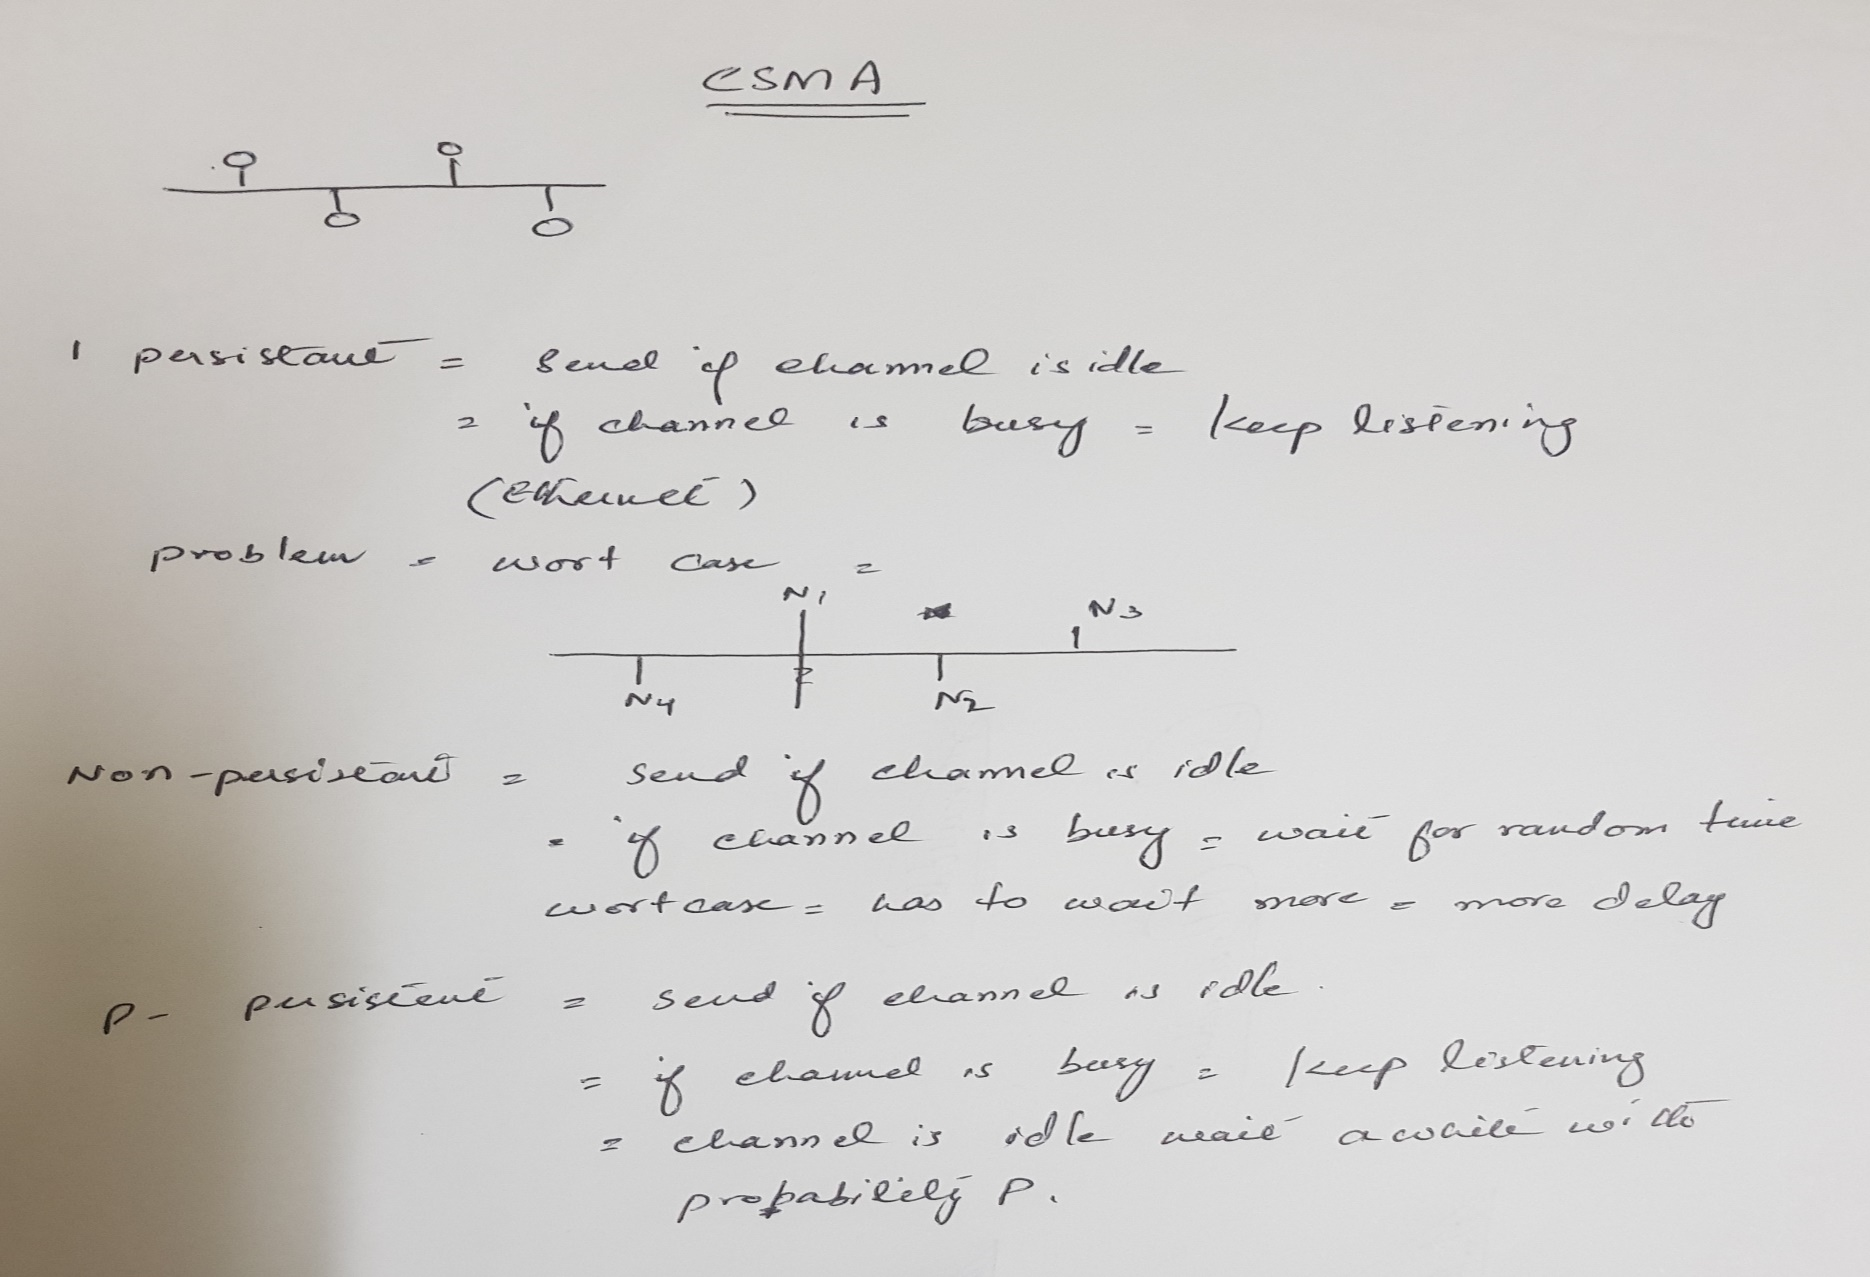 CSMA
1 persistant = Send if channel is idle
= if channel is busy = keep listening
(Ethernet)
problem = wort case =
N1 N3
N4 N2
Non-persistant = send if channel is idle
= if channel is busy = wait for random time
wortcase = has to wait more = more delay
P- persistent = send if channel is idle.
= if channel is busy = keep listening
= channel is idle wait a while with
probability P.